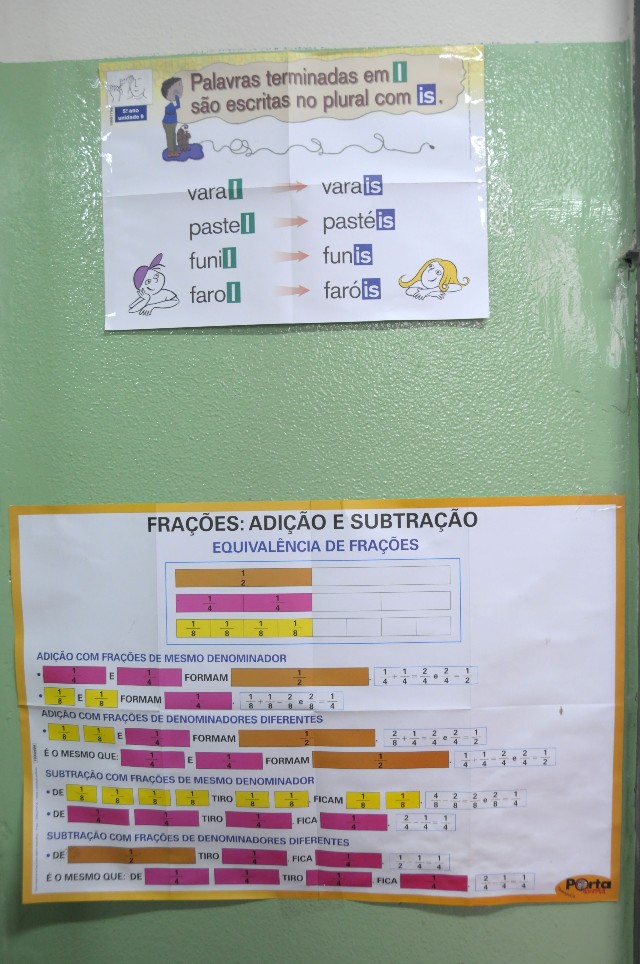 Palavras terminadas em l
são escritas no plural com is.
5º ano
unidade 6
varal varais
pastel pastéis
funil funis
farol faróis
FRAÇÕES: ADIÇÃO E SUBTRAÇÃO
EQUIVALÊNCIA DE FRAÇÕES
1/2
1/4 1/4
1/8 1/8 1/8 1/8
ADIÇÃO COM FRAÇÕES DE MESMO DENOMINADOR
• 1/4 E 1/4 FORMAM 1/2 . 1/4 + 1/4 = 2/4 e 2/4 = 1/2
• 1/8 E 1/8 FORMAM 1/4 . 1/8 + 1/8 = 2/8 e 2/8 = 1/4
ADIÇÃO COM FRAÇÕES DE DENOMINADORES DIFERENTES
• 1/8 1/8 E 1/4 FORMAM 1/2 . 2/8 + 1/4 = 2/4 e 2/4 = 1/2
É O MESMO QUE: 1/4 E 1/4 FORMAM 1/2 . 1/4 + 1/4 = 2/4 e 2/4 = 1/2
SUBTRAÇÃO COM FRAÇÕES DE MESMO DENOMINADOR
• DE 1/8 1/8 1/8 1/8 TIRO 1/8 1/8 , FICAM 1/8 1/8 . 4/8 - 2/8 = 2/8 e 2/8 = 1/4
• DE 1/4 1/4 TIRO 1/4 , FICA 1/4 . 2/4 - 1/4 = 1/4
SUBTRAÇÃO COM FRAÇÕES DE DENOMINADORES DIFERENTES
• DE 1/2 TIRO 1/4 , FICA 1/4 . 1/2 - 1/4 = 1/4
É O MESMO QUE: DE 1/4 1/4 TIRO 1/4 , FICA 1/4 . 2/4 - 1/4 = 1/4
Porta